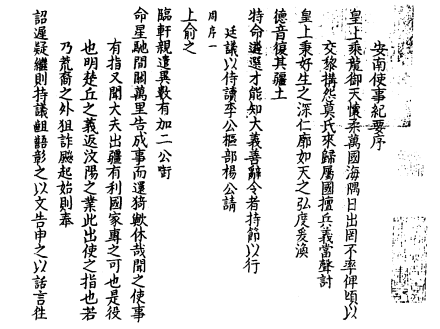 安南使事紀要序
皇上乘龍御天懷柔萬國海隅日出罔不率俾頃以
交黎搆怨莫氏來歸屬國擅兵義當聲討
皇上秉好生之深仁廓如天之弘度爰渙
德音復其疆土
特命遴選才能知大義善辭令者持節以行
周序一
廷議以侍讀李公樞部楊公請
上俞之
臨軒親遣異數有加二公銜
命星馳間關萬里告成事而還猗歟休哉聞之使事
有指又聞大夫出疆有利國家專之可也是役
也明楚丘之義返汶陽之業此出使之指也若
乃荒裔之外狙詐飈起始則奉
詔遲疑繼則持議齟齬彰之以文告申之以話言往